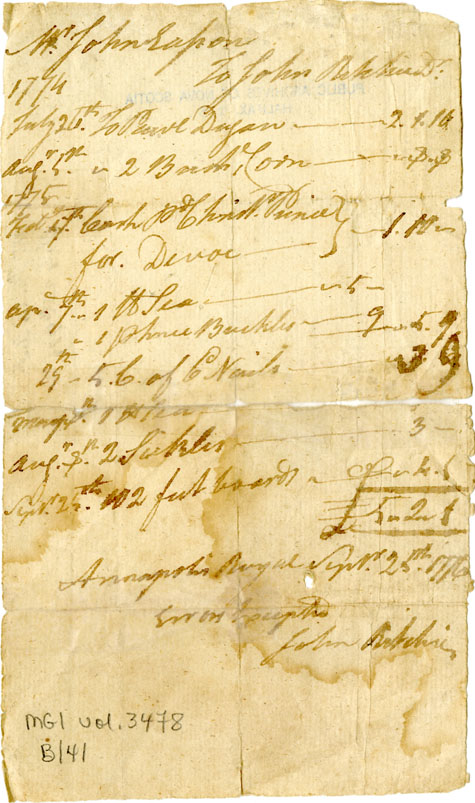 Mr John Eason
To John Ritchie Dr
1774
July 26th To Pavr Dugan 2.1.10
Augt 5th " 2 Bush. Corn " 8. 8
1775
Feb. 17th Cash Pd Christr Prince
for Devoe 1.10
Apr. 7th " 1 lb Tea " 5 "
" 1 p Shoe Buckles 9 " 5.9
29th " 5. C. of 6 Nails " 3 9
1 lb Tea
Augt 8th 2 Sickles 3
Sept 25th 102 feet boards " " 4. 1
5 " 2. 1
Annapolis Royal Septr 25th 1776
Errors Excepted
John Ritchie
MG1 vol. 3478
B/41